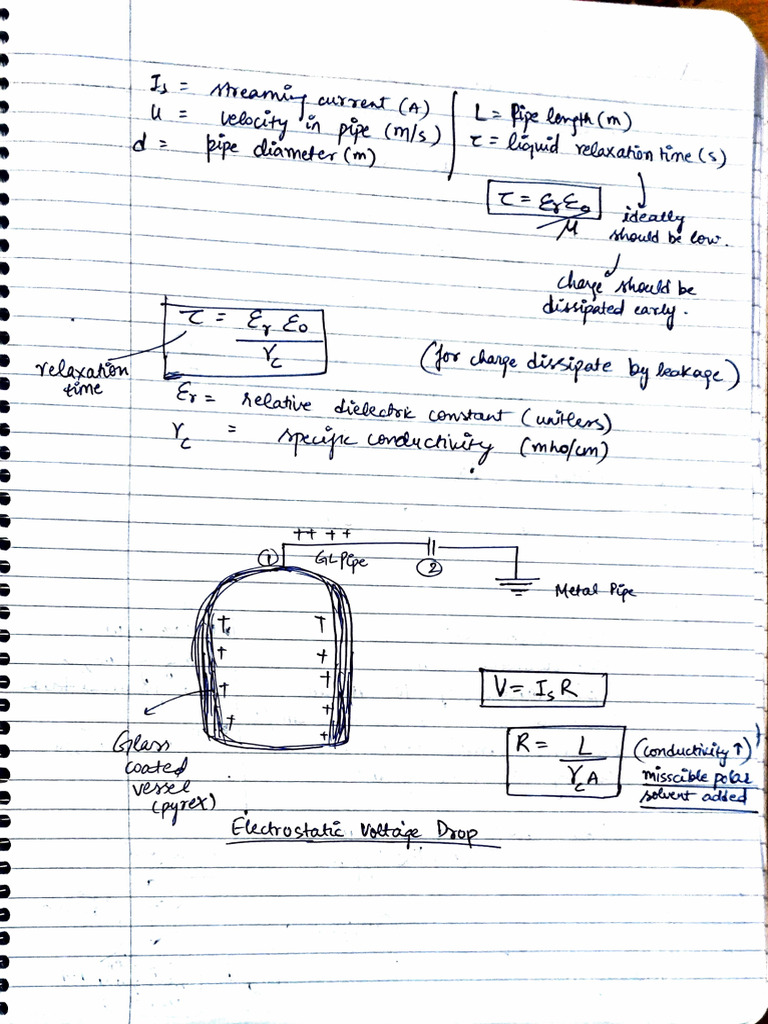 Is = streaming current (A)
u = velocity in pipe (m/s)
d = pipe diameter (m)
L = Pipe length (m)
τ = liquid relaxation time (s)
τ = εr ε0 / μ
ideally
should be low.
charge should be
dissipated early.
τ = εr ε0 / γc
relaxation
time
(for charge dissipate by leakage)
εr = relative dielectric constant (unitless)
γc = specific conductivity (mho/cm)
++ + +
① GL Pipe ②
Metal Pipe
+ +
+ +
+ +
+ +
+
V = Is R
R = L / γc A
(conductivity ↑)
misscible polar
solvent added
Glass
coated
vessel
(pyrex)
Electrostatic Voltage Drop